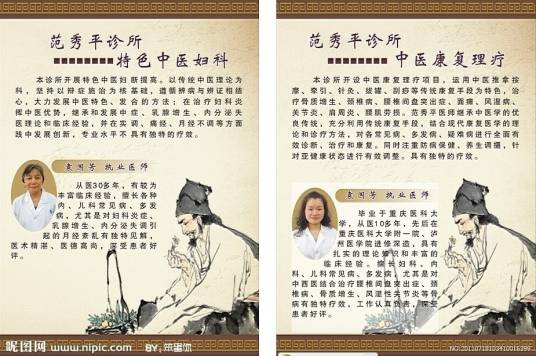 范秀平诊所
特色中医妇科
本诊所开展特色中医妇断提高。以传统中医理论为
科，坚持以辩症施治为核基础，遵循辨病与辨证相结
心，大力发展中医特色、发合的方法；在治疗妇科炎
挥中医优势，继承和发展中症、乳腺增生、内分泌失
医理论和临床经验，并在实调、痛经、月经不调等方面
践中发展创新，专业水平不具有独特的疗效。
袁国芳 执业医师
从医30多年，有较为
丰富临床经验，擅长各种
内、儿科常见病、多发
病，尤其是对妇科炎症、
乳腺增生、内分泌失调引
起的月经紊乱有独特见解，
医术精湛、医德高尚，深受患者好
评。
范秀平诊所
中医康复理疗
本诊所开设中医康复理疗项目，运用中医推拿按
摩、牵引、针灸、拔罐、刮痧等传统康复手段为特色，治
疗骨质增生、颈椎病、腰椎间盘突出症、面瘫、风湿病、
关节炎、肩周炎、腰肌劳损。范秀平医师继承中医学的优
良传统，充分利用传统康复手段，结合现代康复医学的理
论和诊疗方法，对各常见病、多发病、疑难病进行全面有
效诊断、治疗和康复。同时注重防病保健、养生调摄，针
对亚健康状态进行有效调整。具有独特的疗效。
袁国芳 执业医师
毕业于重庆医科大
学，从医10多年，先后在
重庆医科大学附一院、泸
州医学院进修深造，具有
扎实的理论知识和丰富的
临床经验。擅长妇科、内
科、儿科常见病、多发病，尤其是对
中西医结合治疗腰椎间盘突出症、颈
椎病、骨质增生、风湿性关节炎等骨
病有独特疗效，工作认真负责，深受
患者好评。
昵图网
www.nipic.com BY：笨蛋你